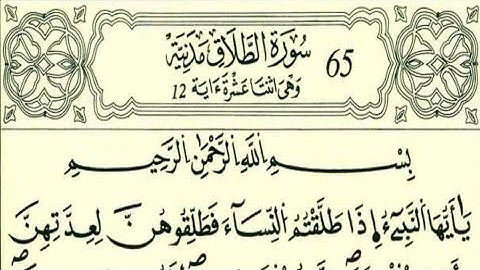 سُورَةُ الطَّلَاقِ مَدَنِيَّةٌ 65
وَهْىَ اثْنَتَا عَشْرَةَ ءَايَةً 12
بِسْمِ اللَّهِ الرَّحْمَٰنِ الرَّحِيمِ
يَٰأَيُّهَا النَّبِيٓءُ إِذَا طَلَّقْتُمُ النِّسَآءَ فَطَلِّقُوهُنَّ لِعِدَّتِهِنَّ